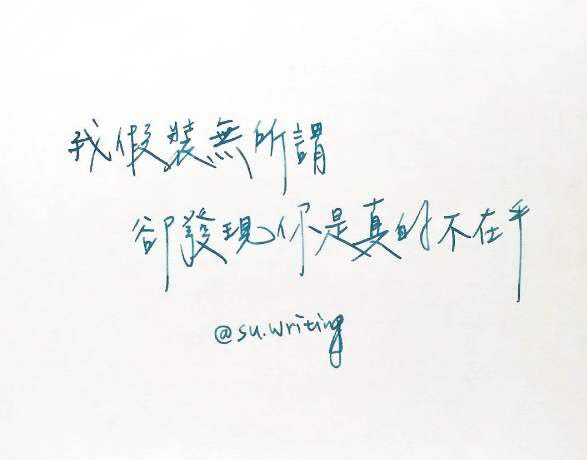 我假裝無所謂
卻發現你是真的不在乎
@su.writing